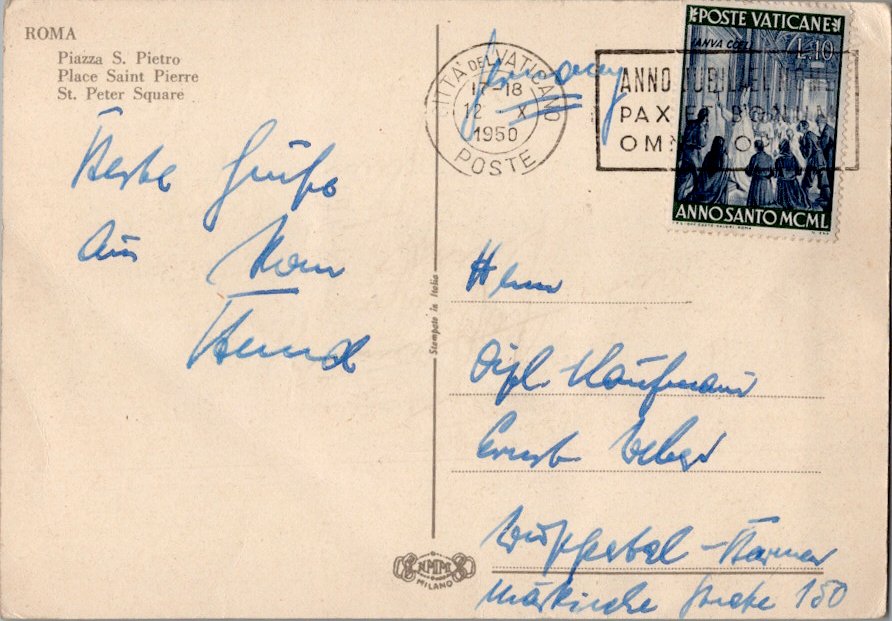 ROMA
Piazza S. Pietro
Place Saint Pierre
St. Peter Square
Beste Grüße
aus Rom
Stampato in Italia
NMM
MILANO
CITTÀ DEL VATICANO
17-18
12 X
1950
POSTE
Germany
ANNO
PAX ET BONUM
OMN
POSTE VATICANE
IANVA COELI
L.10
ANNO SANTO MCML
Herrn
Dipl. Kaufmann
Ernst Weber
Wuppertal-Barmen
Märkische Straße 150